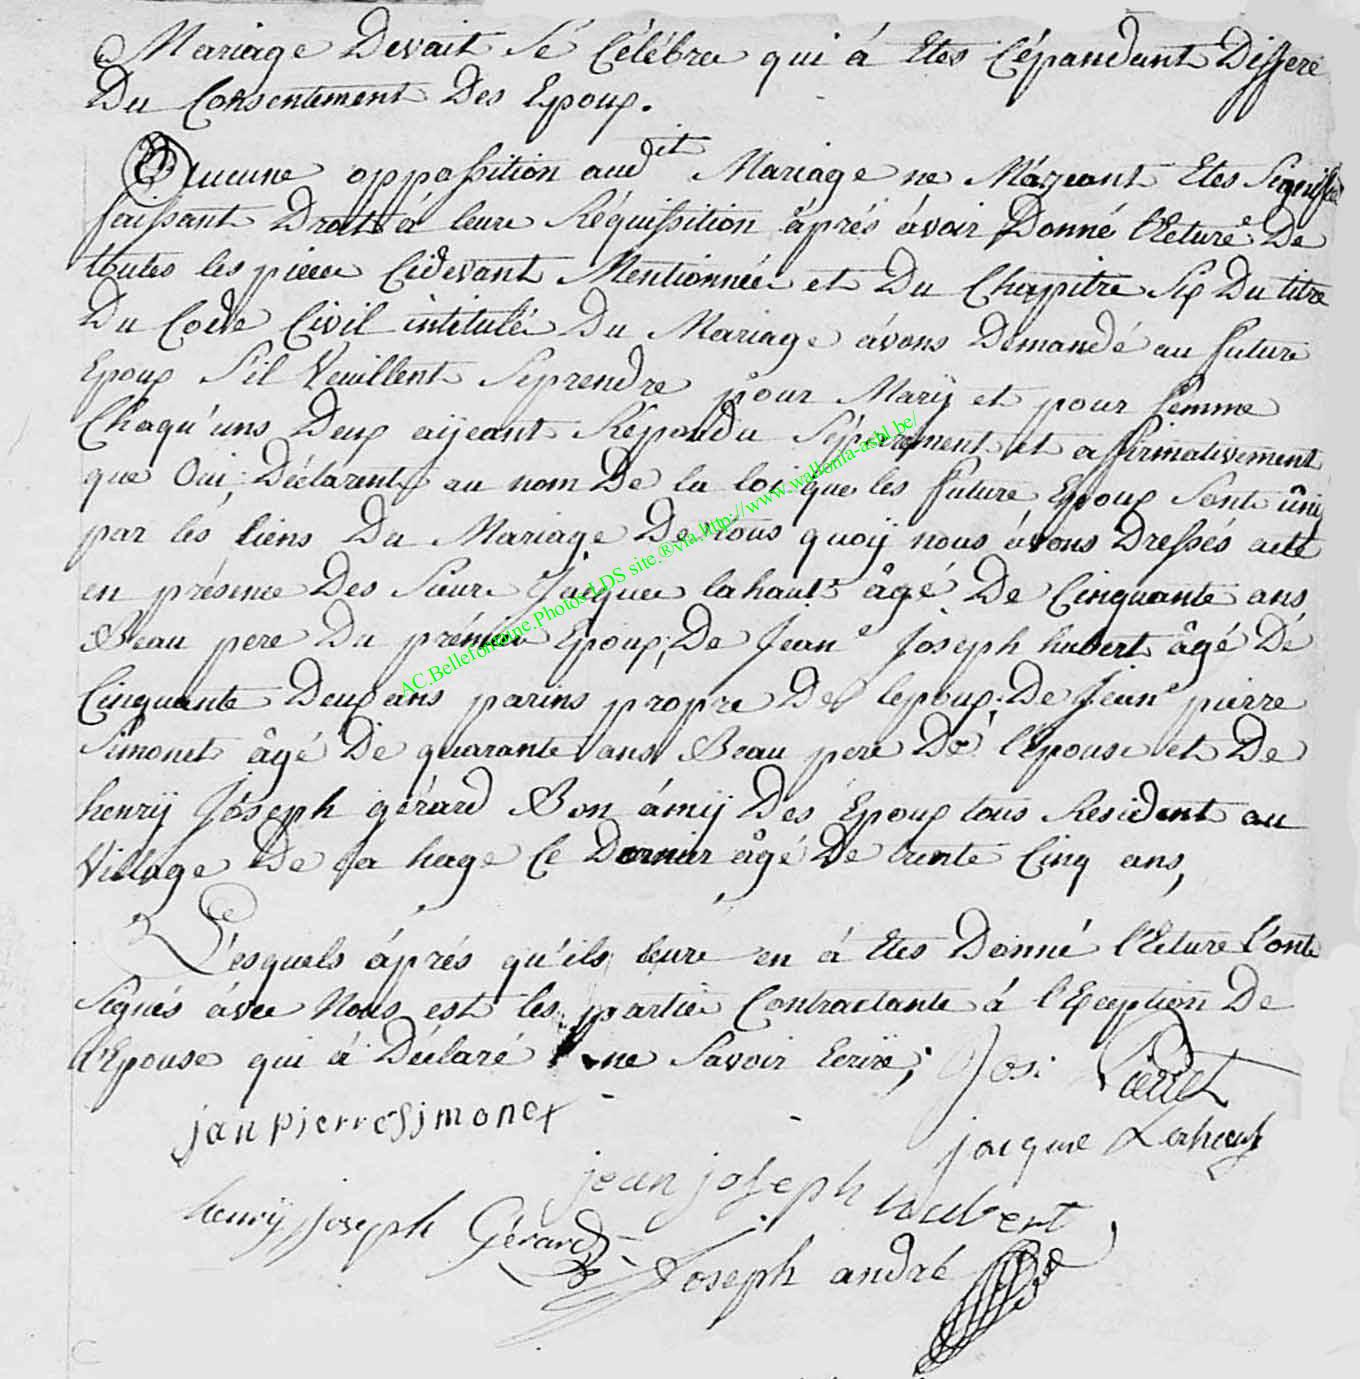 Mariage Devait Sé Célébrer qui á Etes Cépandant Differé
Du Consentement Des Epoux.
Aucune oppossition audit Mariage ne M'ayeant Etes Signifié
faissant Droit á leure Réquissition áprés ávoir Donné l'Eeture De
toutes les pieces Cidevant Mentionnée et Du Chapitre Six Du titre
Du Code Civil intitulé Du Mariage ávons Demandé au future
Epoux S'il Veuillent Seprendre pour Marÿ et pour femme
Chaqu'uns Deux aÿeant Répondu Séparément et affirmativement
que Oui; Déclarent au nom De la loi que les future Epoux Sont ûni
par lés liens Du Mariage De tous quoÿ nous ávons Dressés acte
en présence Des Sieur Jacques lahaut âgé De Cinquante ans
Beau pere Du prémier Epoux; De Jean Joseph hubert âgé Dé
Cinquante Deux ans parins propre De lepoux, De Jean pierre
Simonet âgé De quarante ans Beau peré Dé l'épouse et De
henrÿ Joseph gérard Bon ámiÿ Dés Epoux tous Résident au
Village De la hage Ce Dernier âgé De trente Cinq ans,
Lésquels áprés qu'ils leure en á Etes Donné l'Eeture l'onte
Signés ávec Nous est les partie Contractante á l'Exception De
l'Epouse qui á Déclaré ne Savoir Ecrire;
Jos: Pierret
jan pierre Simonet
jacque Lahaut
jean joseph hubert
henrÿ joseph Gérard
Joseph andré
AC.Bellefontaine.Photos.LDS site.®via.http://www.wallonia-asbl.be/